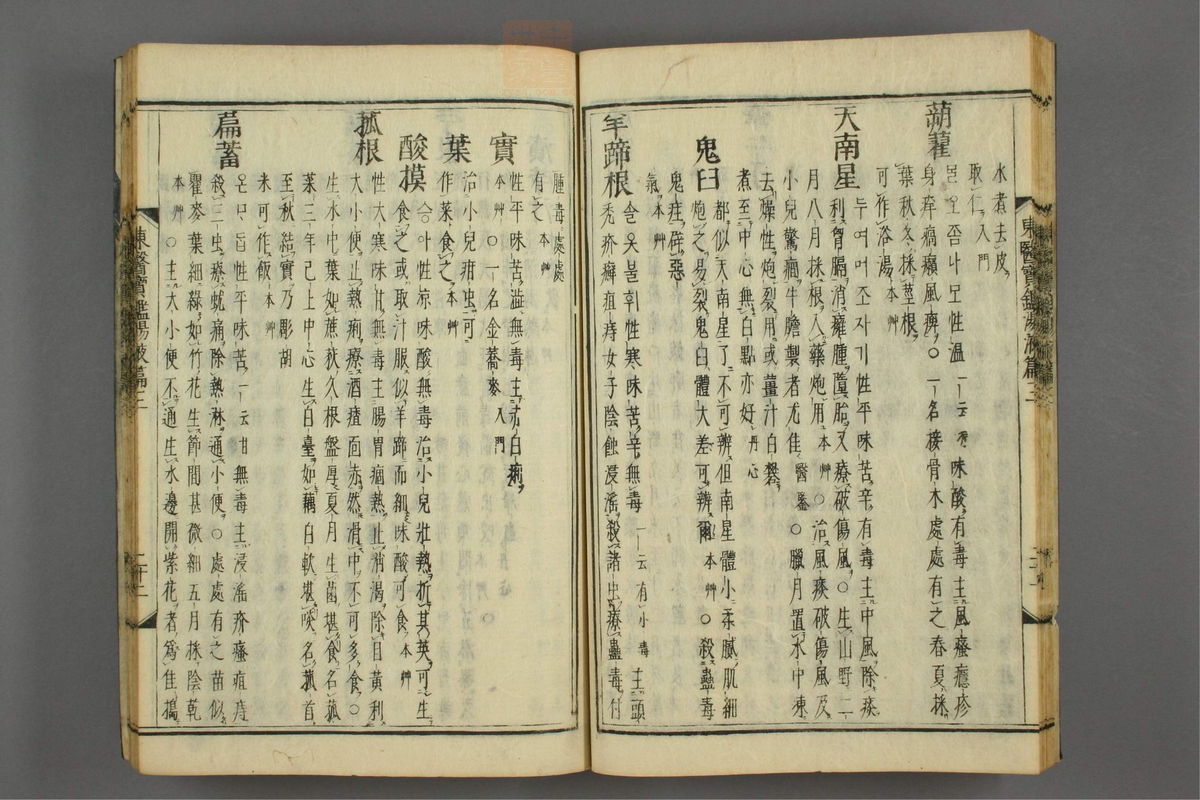 水煮去皮
取仁入門
蒴藋
믈오좀나모性温一云凉味酸有毒主風瘙癮疹
身痒瘑癩風痹○一名接骨木處處有之春夏採
葉秋冬採莖根
可作浴湯本艸
天南星
두여머조자기性平味苦辛有毒主中風除痰
利胷膈消癰腫墮胎又療破傷風○生山野二
月八月採根入藥炮用本艸○治風痰破傷風及
小兒驚癎牛膽製者尤佳醫鑒○臘月置水中凍
去燥性炮裂用或薑汁白礬
煮至中心無白點亦好丹心
鬼臼
都似天南星了不可辨但南星體小柔膩肌細
炮之易裂鬼臼體大差可辨爾本艸○殺蠱毒
鬼疰辟惡
氣本艸
羊蹄根
솔옷불휘性寒味苦辛無毒一云有小毒主頭
禿疥癬疽痔女子陰蝕浸淫殺諸虫療蠱毒付
腫毒處處
有之本艸
實
性平味苦澁無毒主赤白痢
本艸○一名金蕎麥入門
葉
治小兒疳虫可
作菜食之本艸
酸摸
승아性凉味酸無毒治小兒壯熱折其英可生
食之或取汁服似羊蹄而細味酸可食本艸
菰根
性大寒味甘無毒主腸胃痼熱止消渴除目黃利
大小便止熱痢療酒齄面赤然滑中不可多食○
生水中葉如蔗荻久根盤厚夏月生菌堪食名菰
菜三年已上中心生白臺如藕白軟堪啖名菰首
至秋結實乃彫胡
米可作飯本艸
萹蓄
온ᄆᆞᄃᆞᆸ性平味苦一云甘無毒主浸淫疥瘙疽痔
殺三虫療蚘痛除熱淋通小便○處處有之苗似
瞿麥葉細綠如竹花生節間甚微細五月採陰乾
本艸○主大小便不通生水邊開紫花者爲佳搗
東醫寶鑑湯液篇三
二十二